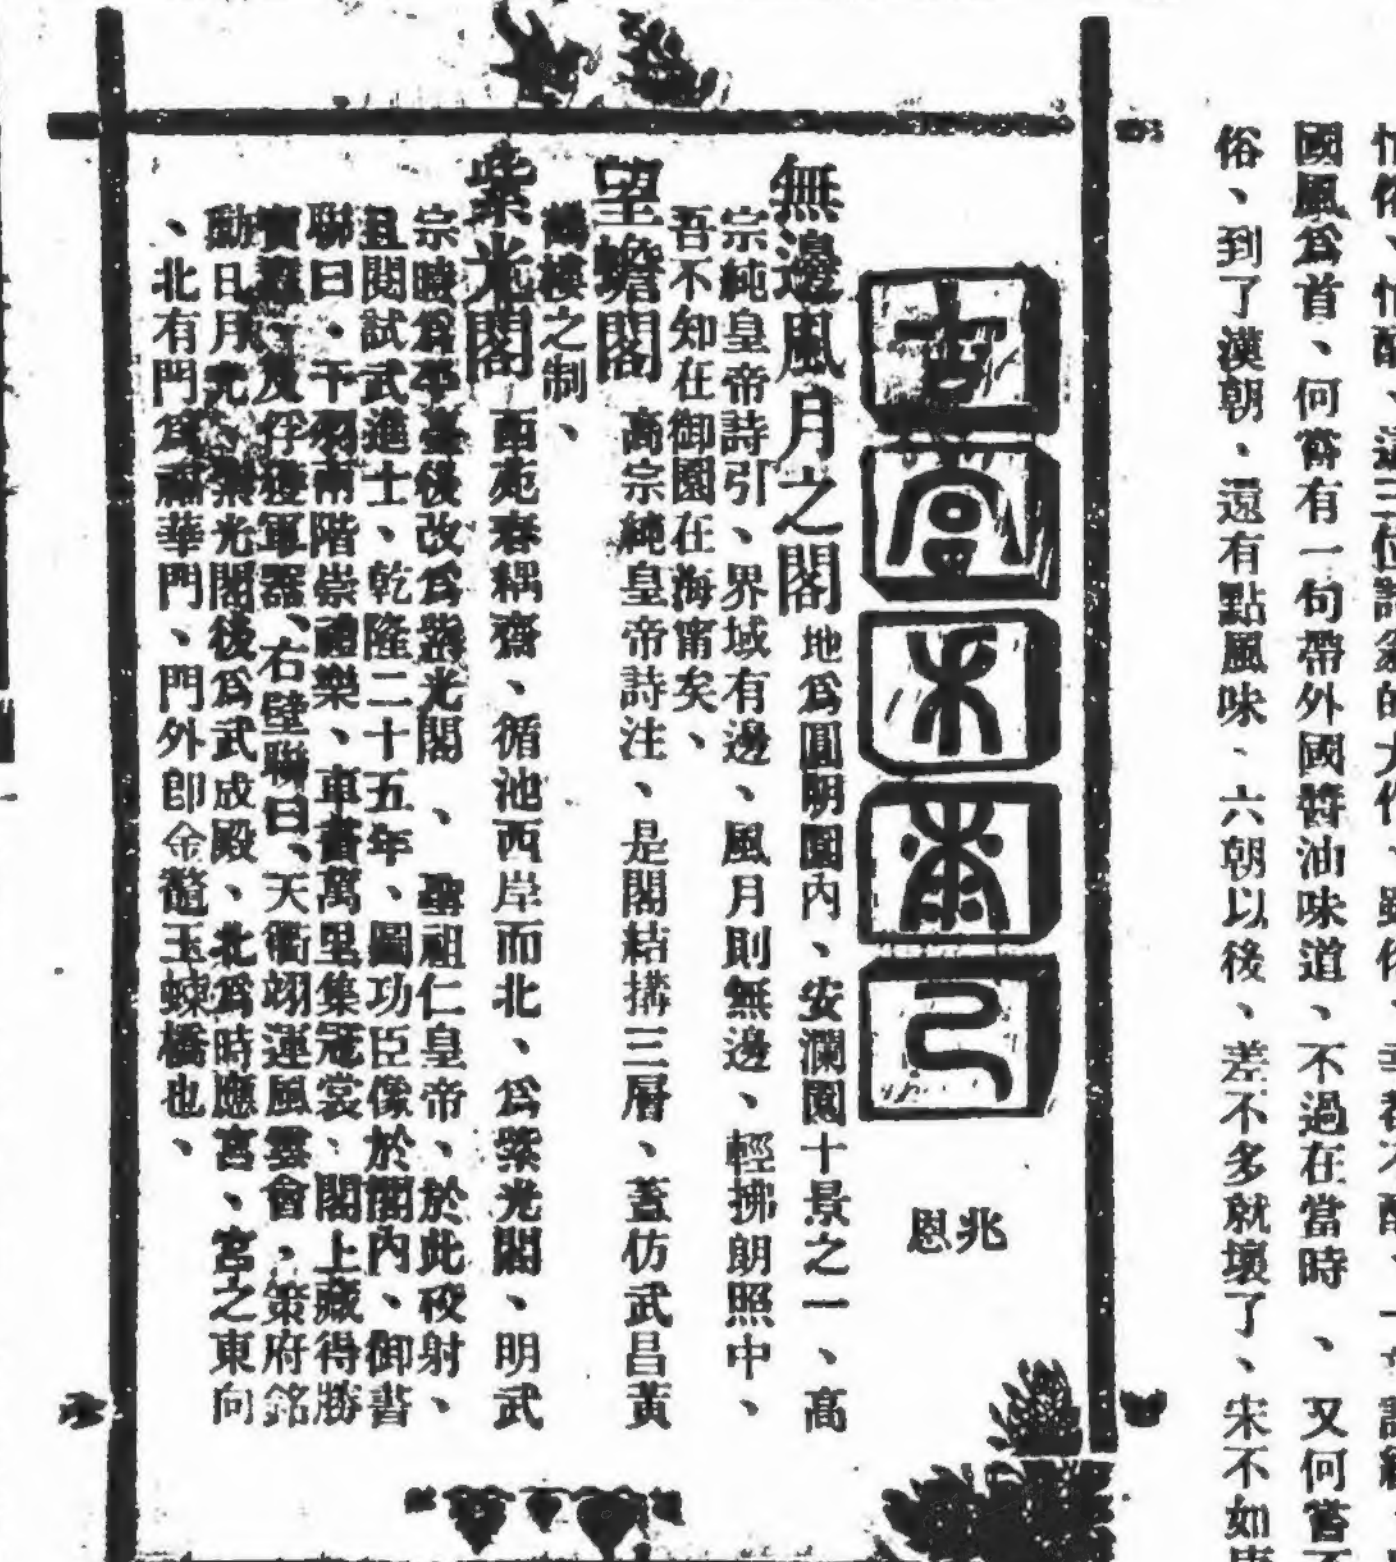 國風爲首、何嘗有一句帶外國醬油味道、不過在當時、又何嘗
俗、到了漢朝、還有點風味、六朝以後、差不多就壞了、宋不如
兆恩
無邊風月之閣 地爲圓明園內、安瀾園十景之一、高
宗純皇帝詩引、界域有邊、風月則無邊、輕拂朗照中、
吾不知在御園在海甯矣、
望蟾閣 高宗純皇帝詩注、是閣結搆三層、蓋仿武昌黃
鶴樓之制、
紫光閣 西苑春耦齋、循池西岸而北、爲紫光閣、明武
宗時爲平臺後改爲紫光閣、聖祖仁皇帝、於此校射、
且閱試武進士、乾隆二十五年、圖功臣像於閣內、御書
聯曰、干羽兩階崇禮樂、車書萬里集冠裳、閣上藏得勝
及俘獲軍器、右壁聯曰、天衢翊運風雲會、策府銘
勳日月光、紫光閣後爲武成殿、北爲時應宮、宮之東向
、北有門爲福華門、門外卽金鼇玉蝀橋也、